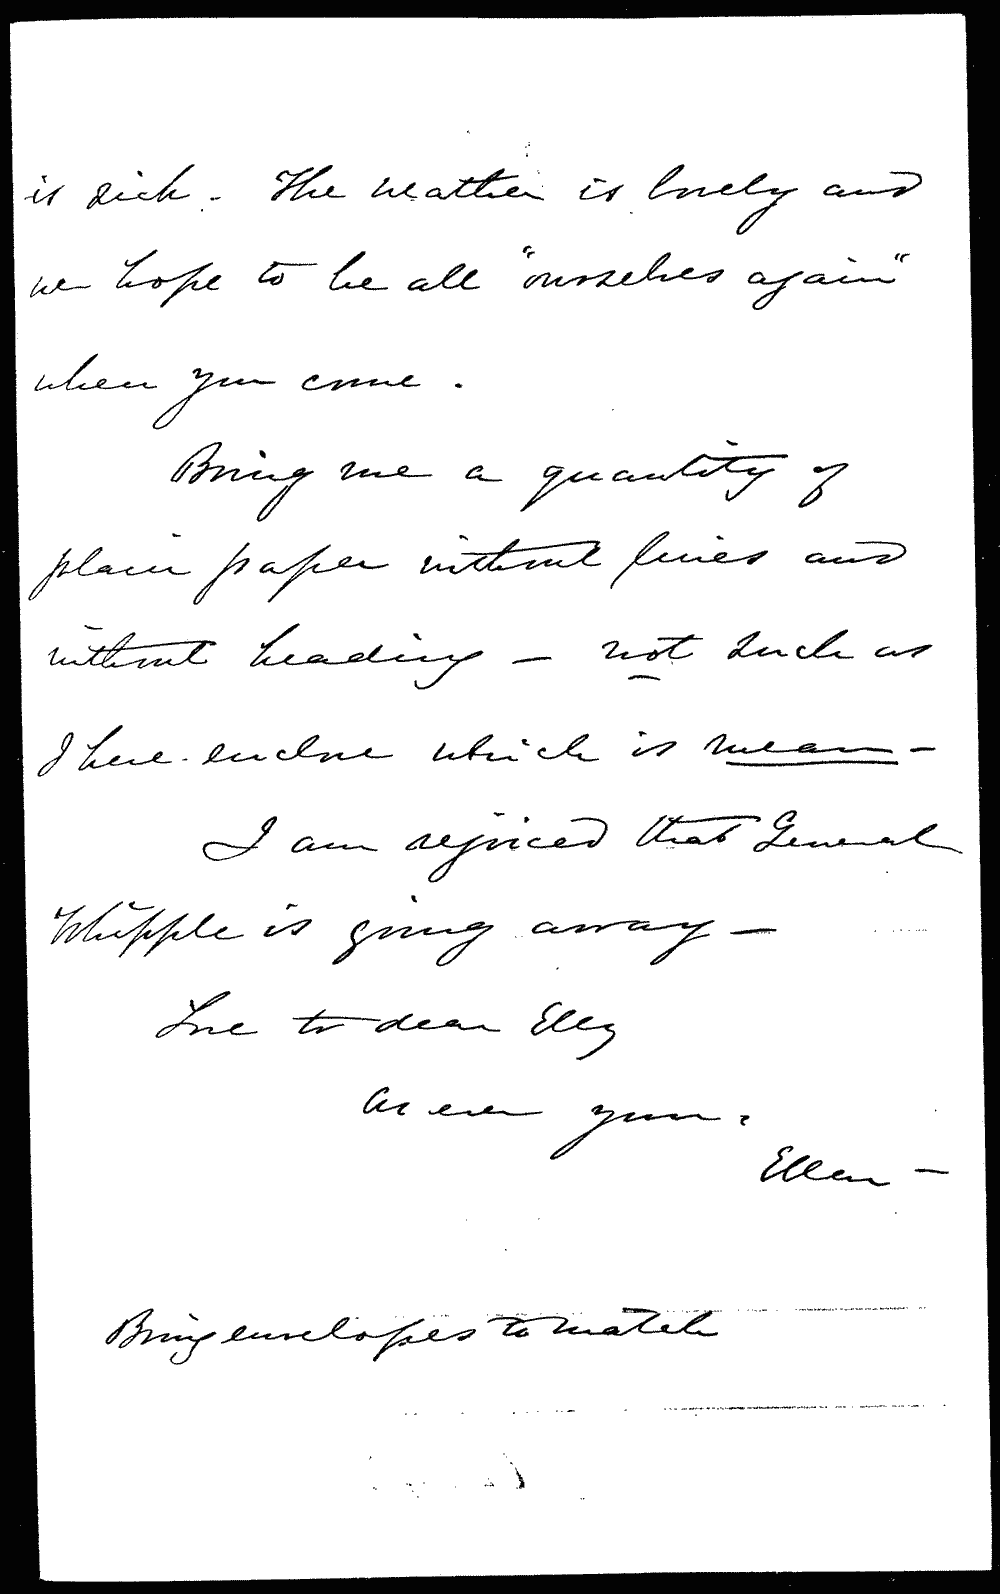 is sick. The weather is lovely and
we hope to be all "ourselves again"
when you come.
Bring me a quantity of
plain paper without lines and
without heading — not such as
I here enclose which is mean —
I am rejoiced that General
Whipple is going away —
Love to dear Elly
As ever yours
Ellen —
Bring envelopes to match